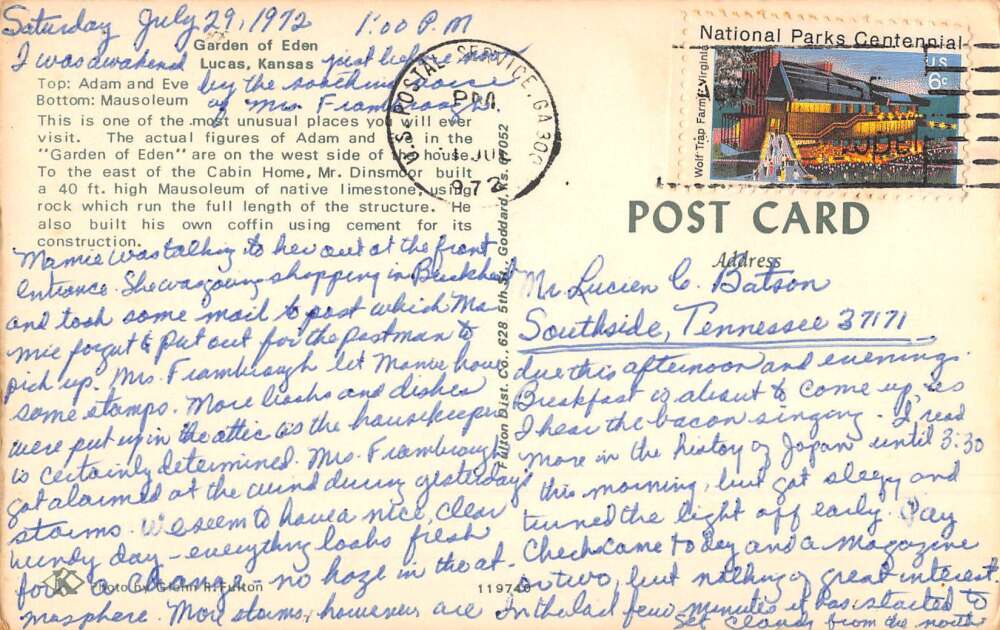 Saturday July 29, 1972 1:00 P.M
Garden of Eden
Lucas, Kansas
I was awakened just before noon
Top: Adam and Eve
by the soothing voice
Bottom: Mausoleum
of Mrs. Frambrough.
This is one of the most unusual places you will ever
visit. The actual figures of Adam and Eve in the
"Garden of Eden" are on the west side of the house.
To the east of the Cabin Home, Mr. Dinsmoor built
a 40 ft. high Mausoleum of native limestone, using
rock which run the full length of the structure. He
also built his own coffin using cement for its
construction.
Mamie was talking to her out at the front
entrance. She was going shopping in Buckhead
and took some mail to post which Ma-
mie forgot to put out for the postman to
pick up. Mrs. Frambrough let Mamie have
some stamps. More books and dishes
were put up in the attic as the housekeeper
is certainly determined. Mrs. Frambrough
got alarmed at the wind during yesterday's
storms. We seem to have a nice, clear
windy day - everything looks fresh
for a change - no haze in the at-
mosphere. More storms, however, are
K
Photo by Glenn H. Fulton
119740
Fulton Dist. Co., 628 5th St., Goddard, Ks. 67052
U.S. POSTAL SERVICE, GA 300
PM
1972
National Parks Centennial
Wolf Trap Farm, Virginia
U.S.
6c
POST CARD
Address
Mr. Lucien C. Batson
Southside, Tennessee 37171
due this afternoon and evenings.
Breakfast is about to come up, as
I hear the bacon singing. I read
more in the history of Japan until 3:30
this morning, but got sleepy and
turned the light off early. Pay
Check came today and a magazine
or two, but nothing of great interest.
In the last few minutes it has started to
get cloudy from the north